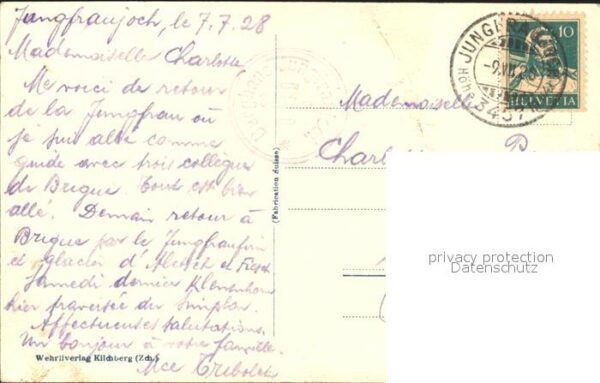 Jungfraujoch, le 7.7.28
Mademoiselle Charlotte
Me voici de retour
de la Jungfrau où
je suis allé comme
guide avec trois collègues
de Brigue Tout est bien
allé. Demain retour à
Brigue par le
et glacier d'Aletsch et Fiesch
Samedi dernier
hier traversée du Simplon.
Affectueuses salutations.
Un bonjour à votre famille.
Wehrliverlag Kilchberg (Zch.)
(Fabrication Suisse)
JUNGFRAUJOCH
3457
10
HELVETIA
Mademoiselle
privacy protection
Datenschutz